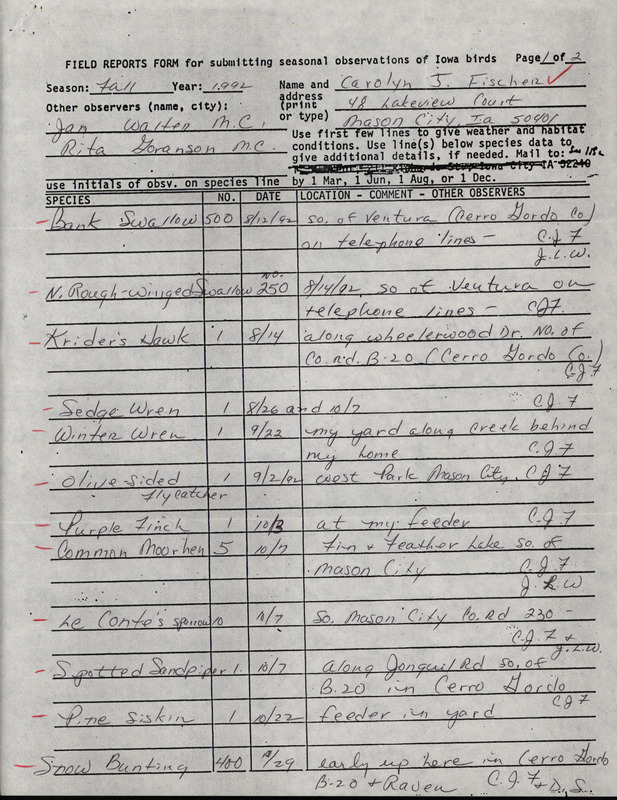 FIELD REPORTS FORM for submitting seasonal observations of Iowa birds Page 1 of 2
Season: Fall Year: 1992 Name and Carolyn J. Fischer
address
Other observers (name, city): (print 48 Lakeview Court
or type) Mason City, Ia 50401
Jan Walter M.C.
Rita Goranson M.C.
Use first few lines to give weather and habitat
conditions. Use line(s) below species data to
give additional details, if needed. Mail to:
Iowa City IA 52240
use initials of obsv. on species line by 1 Mar, 1 Jun, 1 Aug, or 1 Dec.
SPECIES NO. DATE LOCATION - COMMENT - OTHER OBSERVERS
- Bank Swallow 500 8/12/92 so. of Ventura (Cerro Gordo Co.)
on telephone lines - C.J.F
J.L.W.
- N. Rough-Winged Swallow no. 250 8/14/92, so of Ventura on
telephone lines - CJF.
- Krider's Hawk 1 8/14 along wheelerwood Dr. No. of
Co. rd. B-20 (Cerro Gordo Co.)
C.J.F
- Sedge Wren 1 8/26 and 10/7 C.J.F
- Winter Wren 1 9/22 my yard along creek behind
my home C.J.F
- Olive sided 1 9/2/92 west Park Mason City. C.J.F
flycatcher
- Purple Finch 1 10/3 at my feeder C.J.F
- Common Moorhen 5 10/7 Fin + Feather Lake so. of
Mason City C.J.F
J.L.W
- Le Conte's sparrow 10 10/7 So. Mason City Co. Rd 230 -
C.J.F +
J.L.W.
- Spotted Sandpiper 1. 10/7 along Jonquil Rd so. of
B-20 in Cerro Gordo
CJF
- Pine Siskin 1 10/22 feeder in yard
- Snow Bunting 400 10/29 early up here in Cerro Gordo
B-20 + Raven C.J.F + D.S.